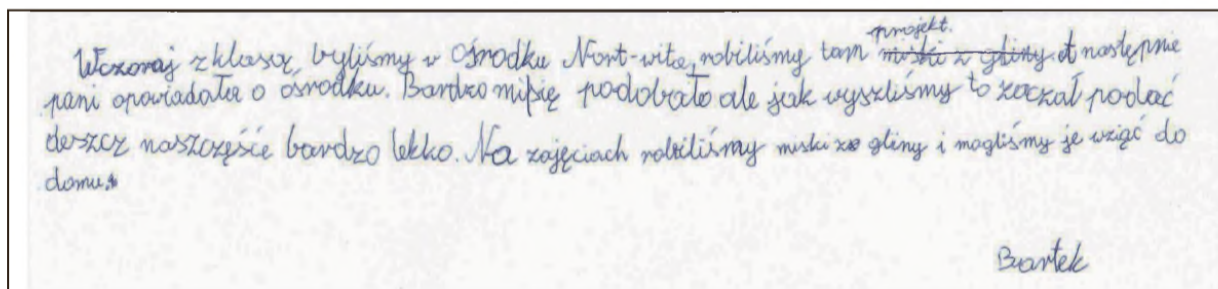 projekt.
Wczoraj z klasą byliśmy w Ośrodku Nort-wita, robiliśmy tam miski z gliny. A następnie
pani opowiadała o ośrodku. Bardzo mi się podobało ale jak wyszliśmy to zaczął podać
deszcz naszczęście bardzo lekko. Na zajęciach robiliśmy miski z gliny i mogliśmy je wziąć do
domu.
Bartek